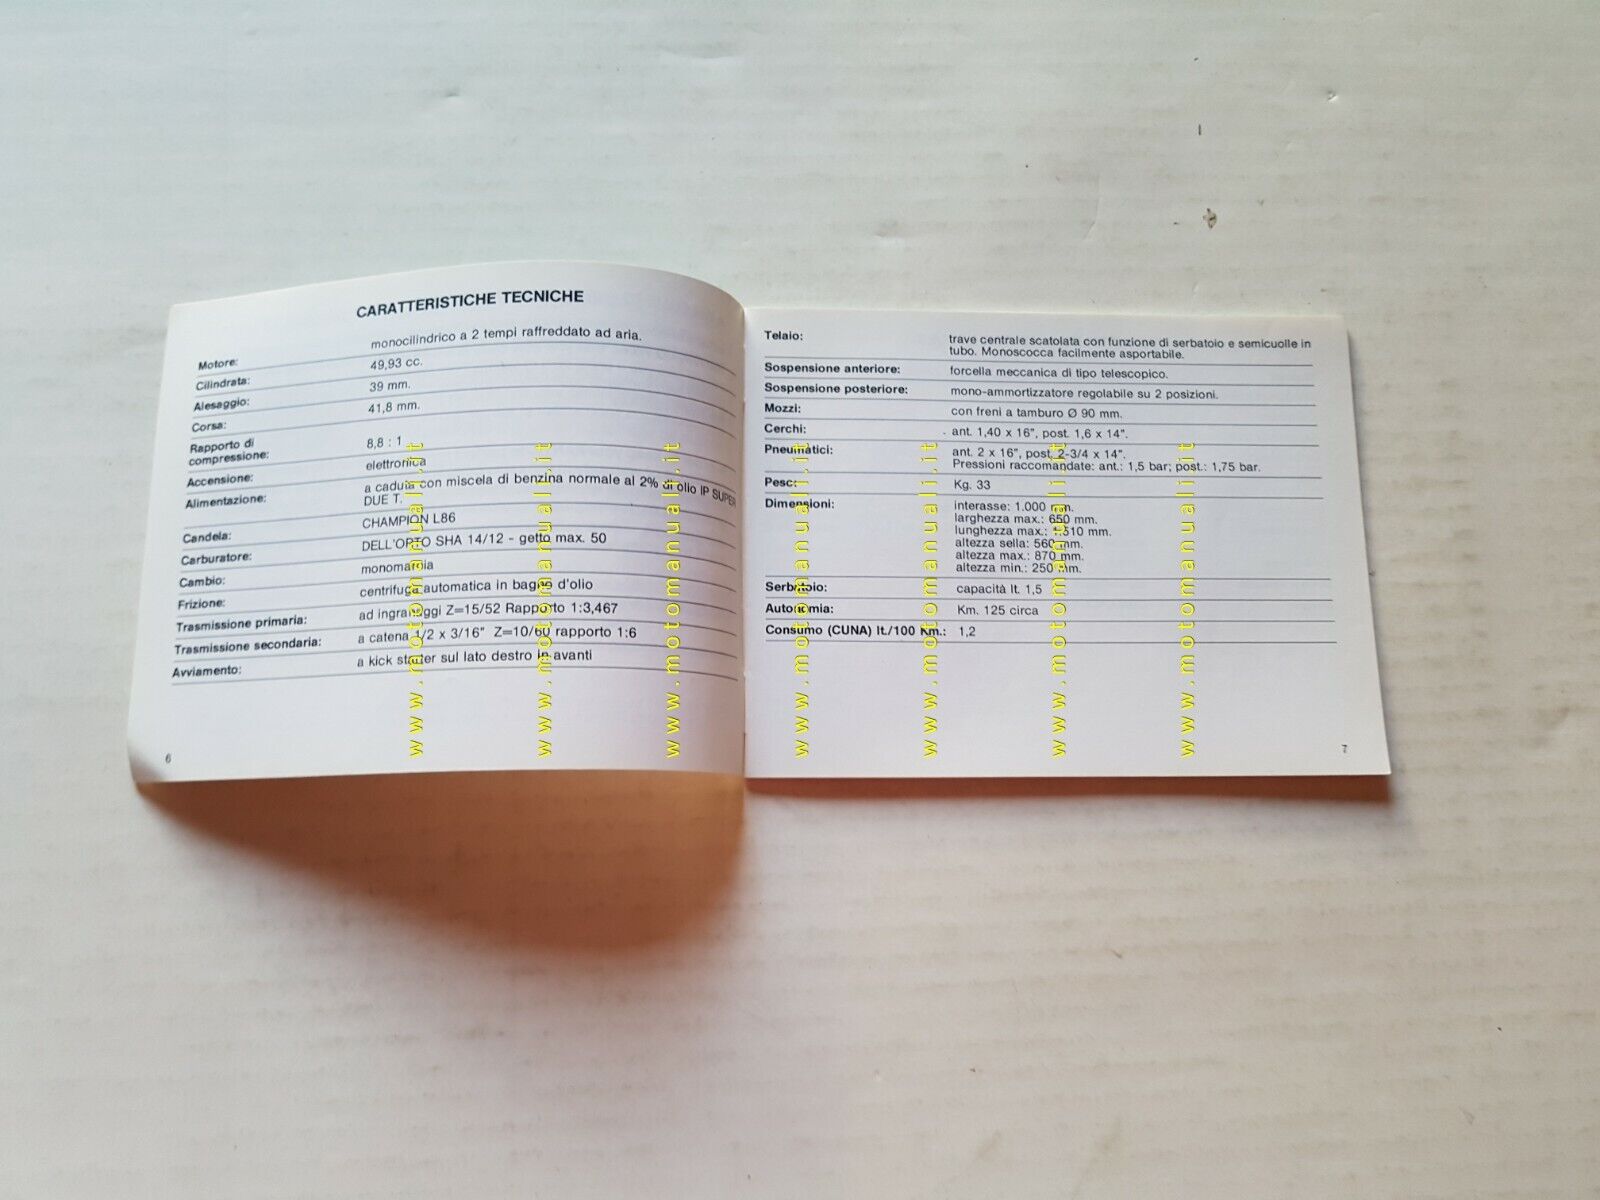 CARATTERISTICHE TECNICHE
Motore: monocilindrico a 2 tempi raffreddato ad aria.
Cilindrata: 49,93 cc.
Alesaggio: 39 mm.
Corsa: 41,8 mm.
Rapporto di
compressione: 8,8 : 1
Accensione: elettronica
Alimentazione: a caduta con miscela di benzina normale al 2% di olio IP SUPER
DUE T.
Candela: CHAMPION L86
Carburatore: DELL'ORTO SHA 14/12 - getto max. 50
Cambio: monomarcia
Frizione: centrifuga automatica in bagno d'olio
Trasmissione primaria: ad ingranaggi Z=15/52 Rapporto 1:3,467
Trasmissione secondaria: a catena 1/2 x 3/16" Z=10/60 rapporto 1:6
Avviamento: a kick starter sul lato destro in avanti
6
Telaio: trave centrale scatolata con funzione di serbatoio e semicuolle in
tubo. Monoscocca facilmente asportabile.
Sospensione anteriore: forcella meccanica di tipo telescopico.
Sospensione posteriore: mono-ammortizzatore regolabile su 2 posizioni.
Mozzi: con freni a tamburo Ø 90 mm.
Cerchi: ant. 1,40 x 16", post. 1,6 x 14".
Pneumatici: ant. 2 x 16", post. 2-3/4 x 14".
Pressioni raccomandate: ant.: 1,5 bar; post.: 1,75 bar.
Peso: Kg. 33
Dimensioni: interasse: 1.000 mm.
larghezza max.: 650 mm.
lunghezza max.: 1.510 mm.
altezza sella: 560 mm.
altezza max.: 870 mm.
altezza min.: 250 mm.
Serbatoio: capacità lt. 1,5
Autonomia: Km. 125 circa
Consumo (CUNA) lt./100 Km.: 1,2
7
www.motomanuali.it
www.motomanuali.it
www.motomanuali.it
www.motomanuali.it
www.motomanuali.it
www.motomanuali.it
www.motomanuali.it